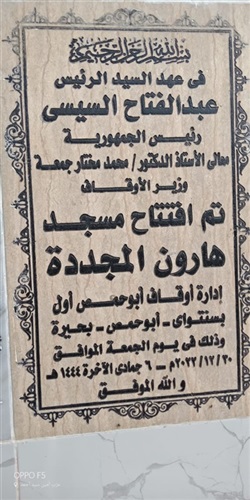 بسم الله الرحمن الرحيم
فى عهد السيد الرئيس
عبدالفتاح السيسى
رئيس الجمهورية
معالى الأستاذ الدكتور / محمد مختار جمعة
وزير الأوقاف
تم افتتاح مسجد
هارون المجددة
إدارة أوقاف أبوحمص أول
بسنتواى - أبوحمص - بحيرة
وذلك فى يوم الجمعة الموافق
٢٠٢٢/١٢/٣٠م - ٦ جمادى الآخرة ١٤٤٤ هـ
و الله الموفق
OPPO F5